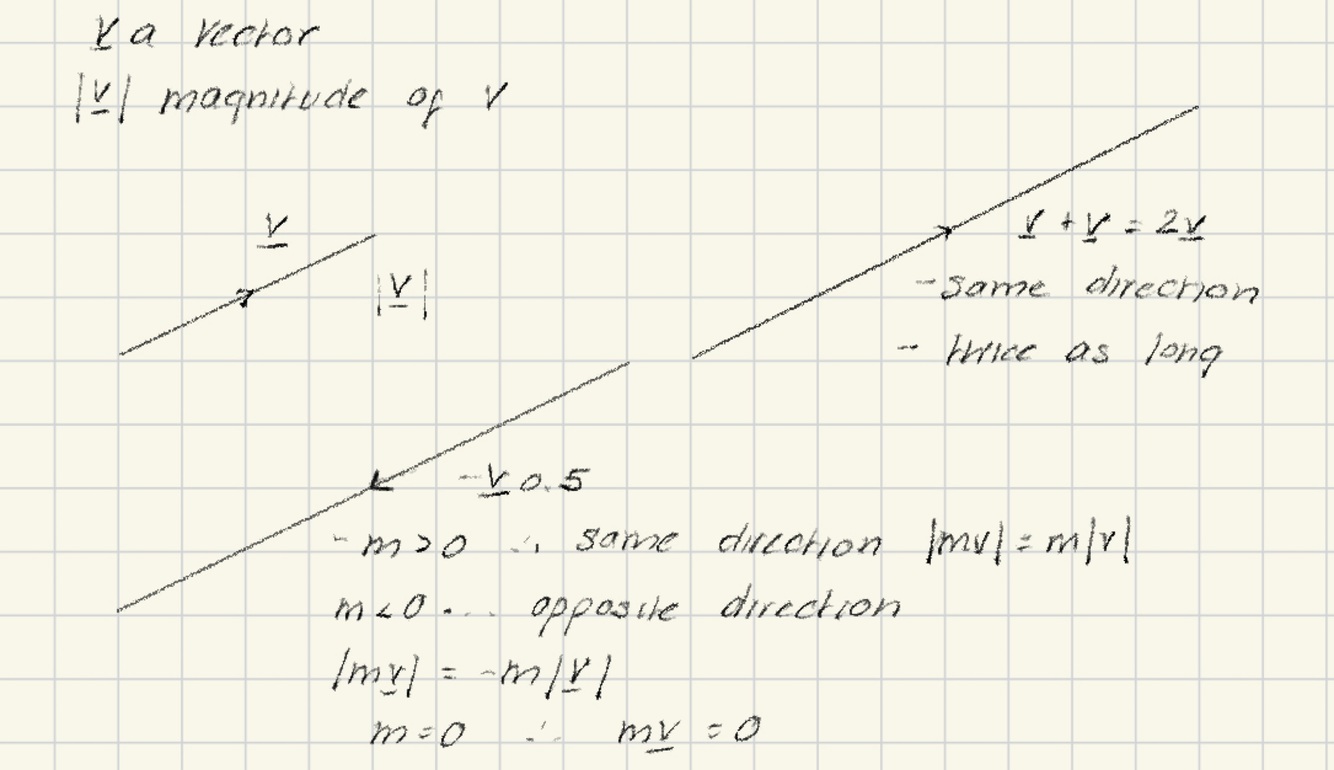 v a vector
|v| magnitude of v
v
|v|
v + v = 2v
- same direction
- twice as long
- v 0.5
- m > 0 ∴ same direction |mv| = m|v|
m < 0 ... opposite direction
|mv| = -m|v|
m = 0 ∴ mv = 0